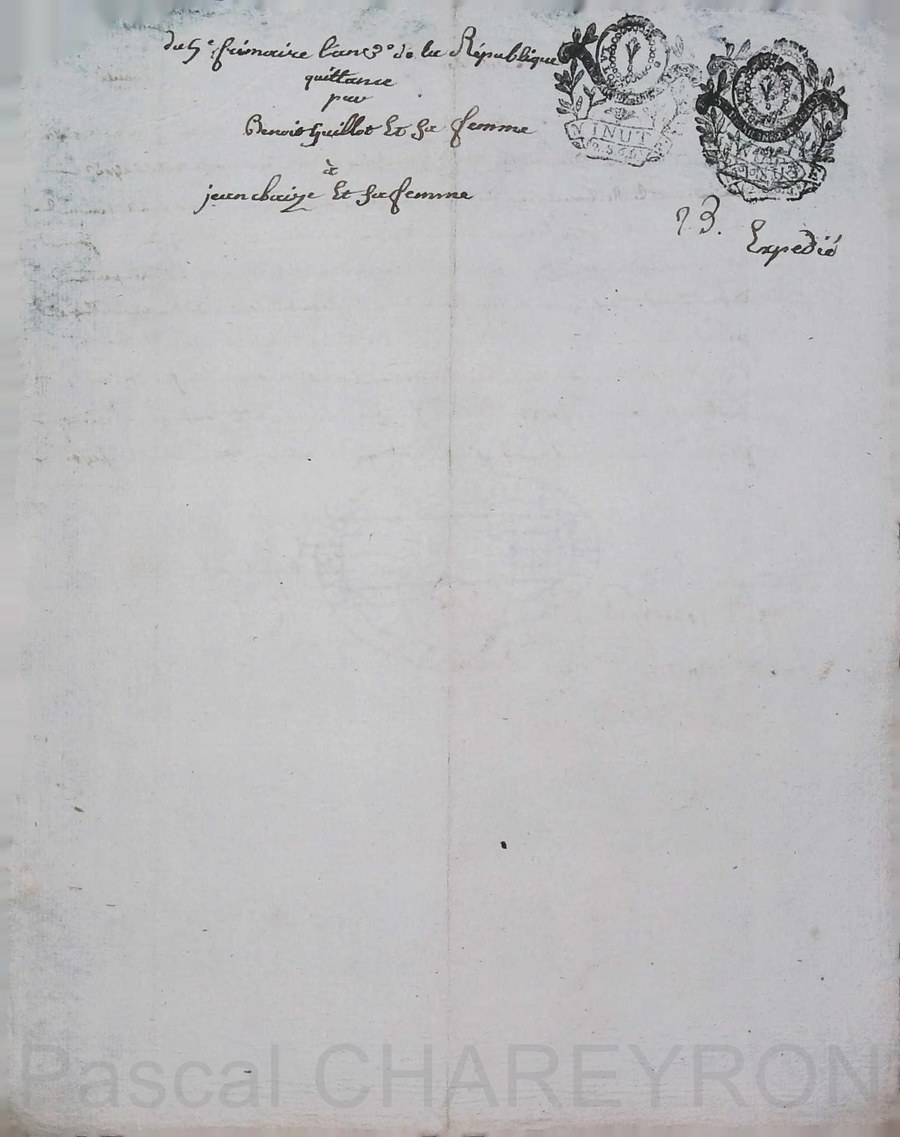 du 5e. frimaire l'an 3e. de la République
quittance
par
Benoit Guillot Et Sa femme
à
jean chaize Et Sa femme
VINUT
23.
Expedié
Pascal CHAREYRON